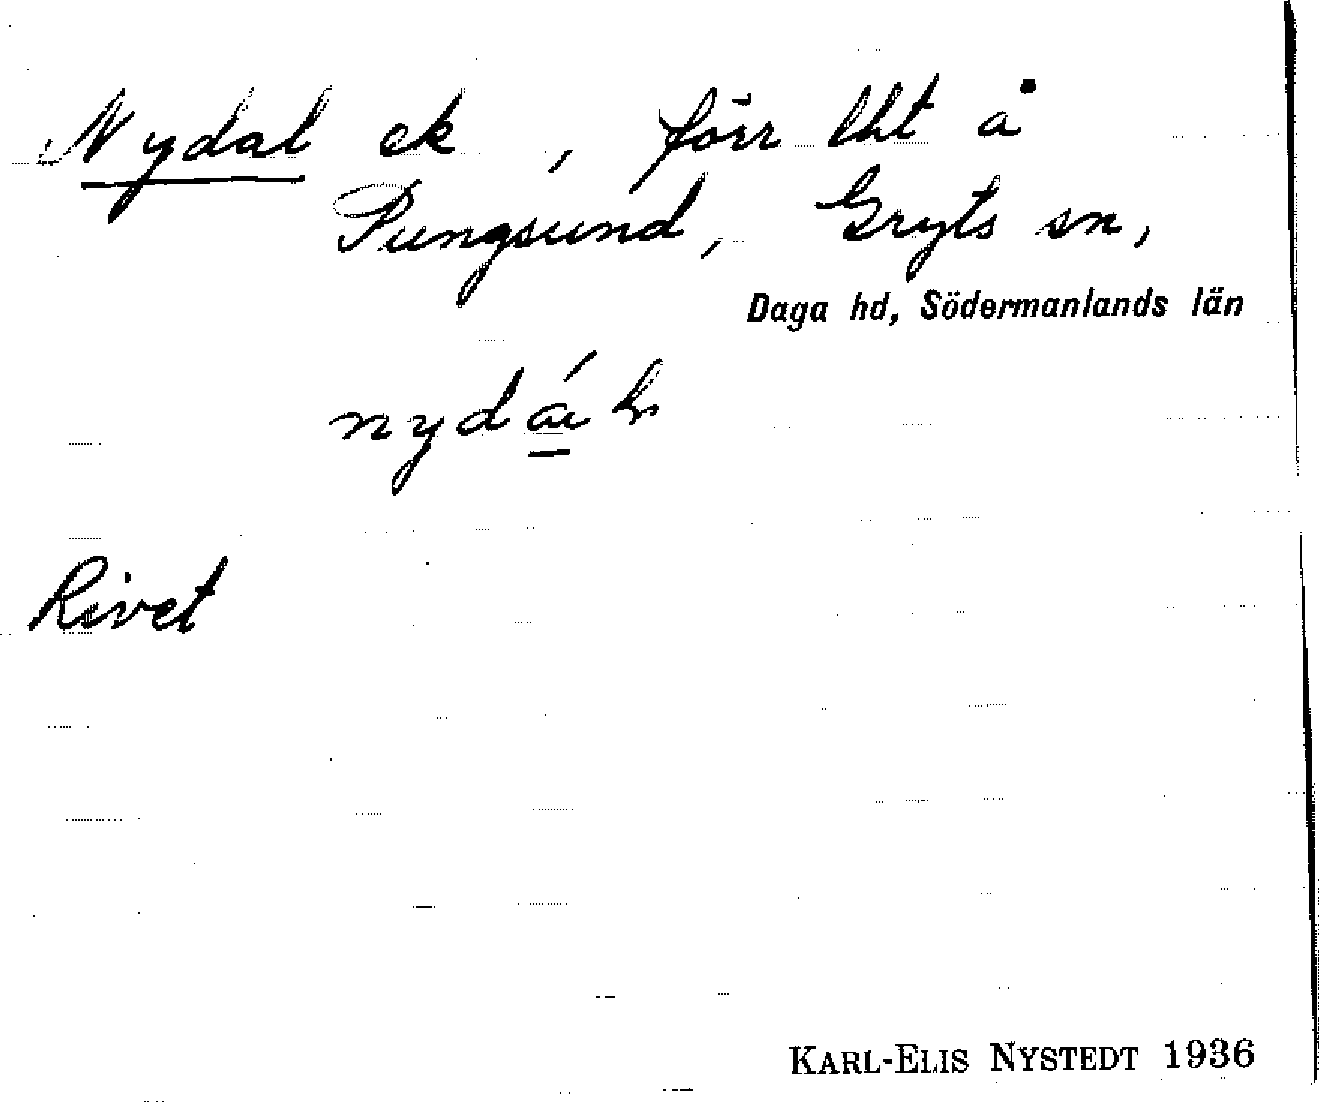 Nydal ek, förr lht å
Pungsund, Gryts sn,
Daga hd, Södermanlands län
Rivet
KARL-ELIS NYSTEDT 1936